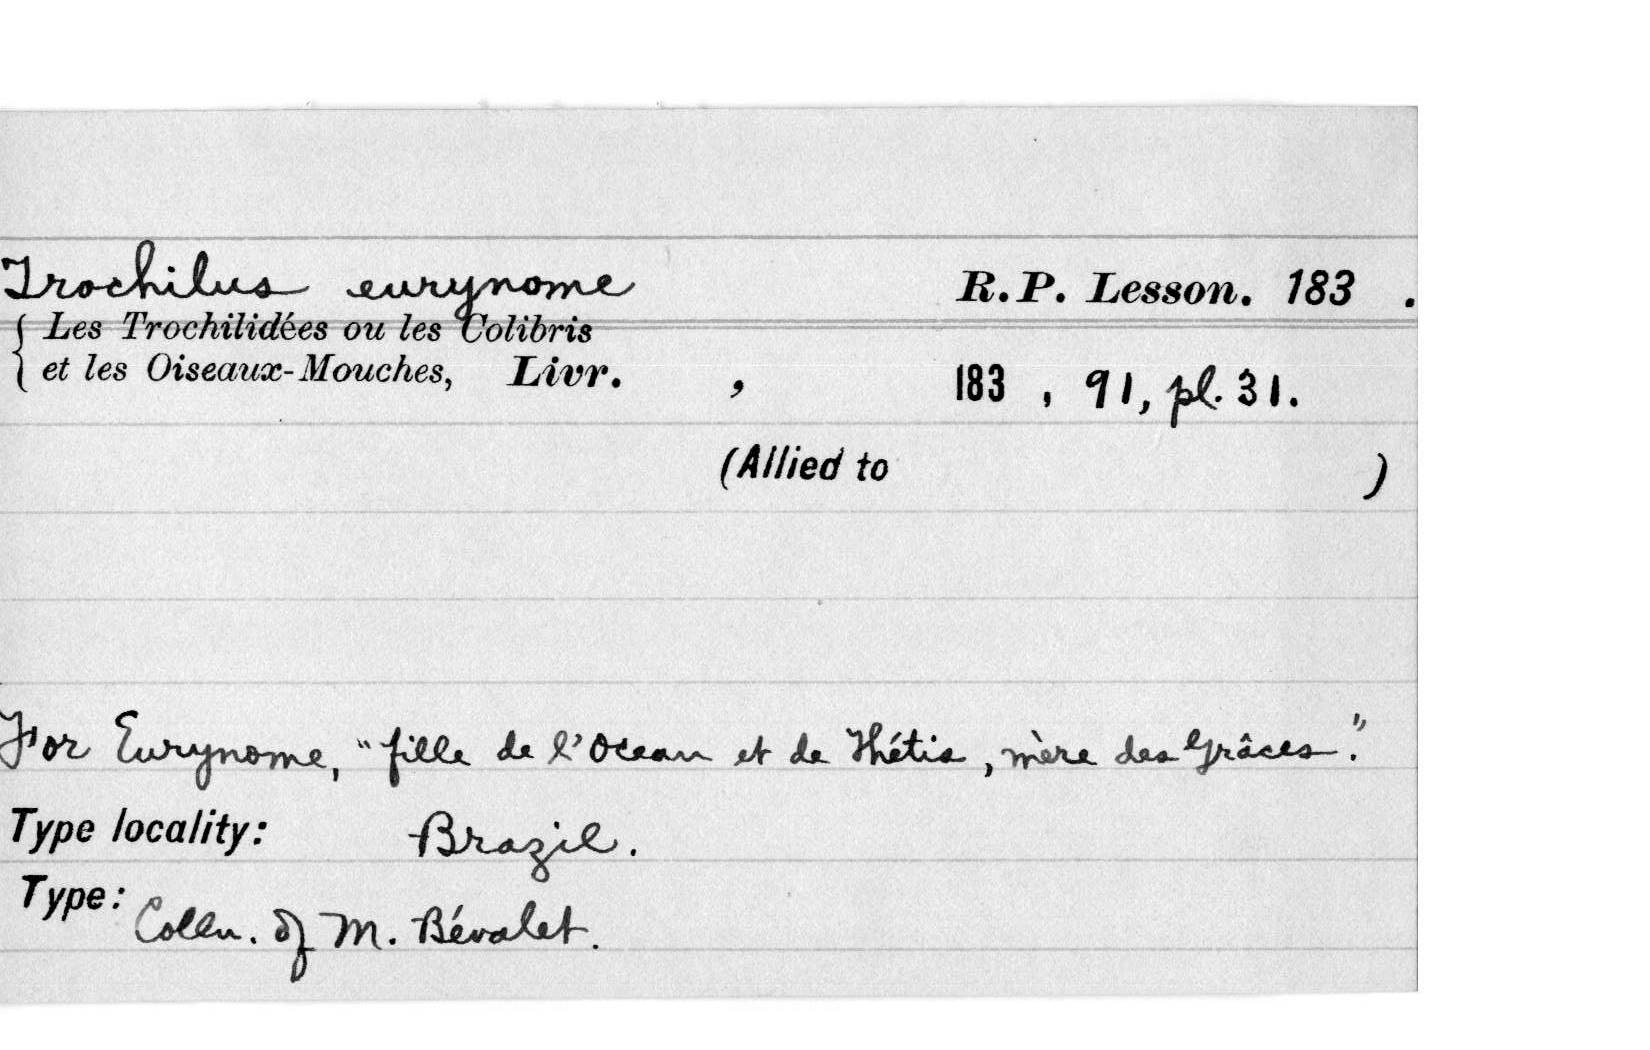 Trochilus eurynome R.P. Lesson. 183 .
Les Trochilidées ou les Colibris
et les Oiseaux-Mouches, Livr. , 183 , 91, pl. 31.
(Allied to )
For Eurynome, "fille de l'Ocean et de Thétis, mère des Grâces."
Type locality: Brazil.
Type: Colln. of M. Bévalet.